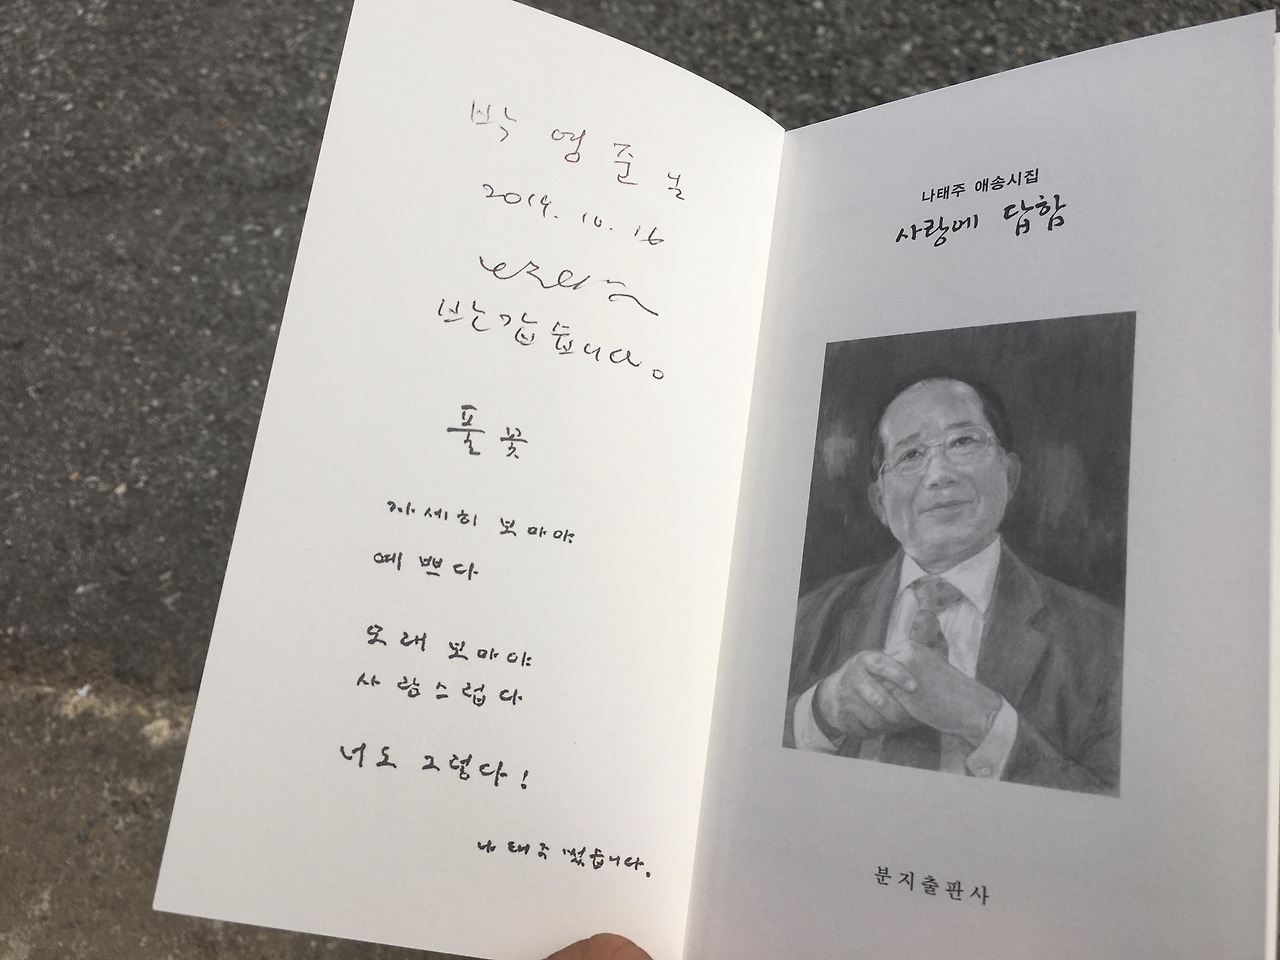 박 영 준 님
2014. 10. 16
반갑습니다.
풀 꽃
자세히 보아야
예쁘다
오래 보아야
사랑스럽다
너도 그렇다!
나태주 썼습니다.
나태주 애송시집
사랑에 답함
분지출판사